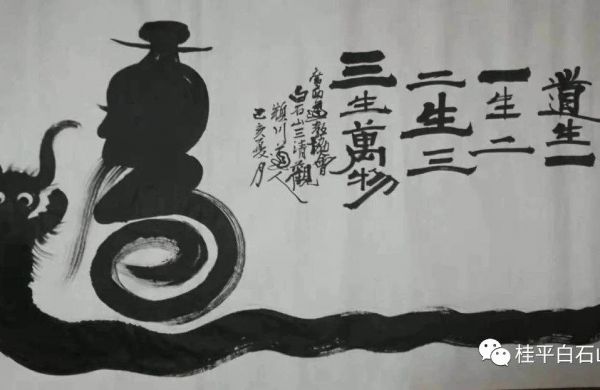 道生一
一生二
二生三
三生萬物
廣西道教協會
白石山三清觀
潁川道人
己亥夏月
桂平白石山